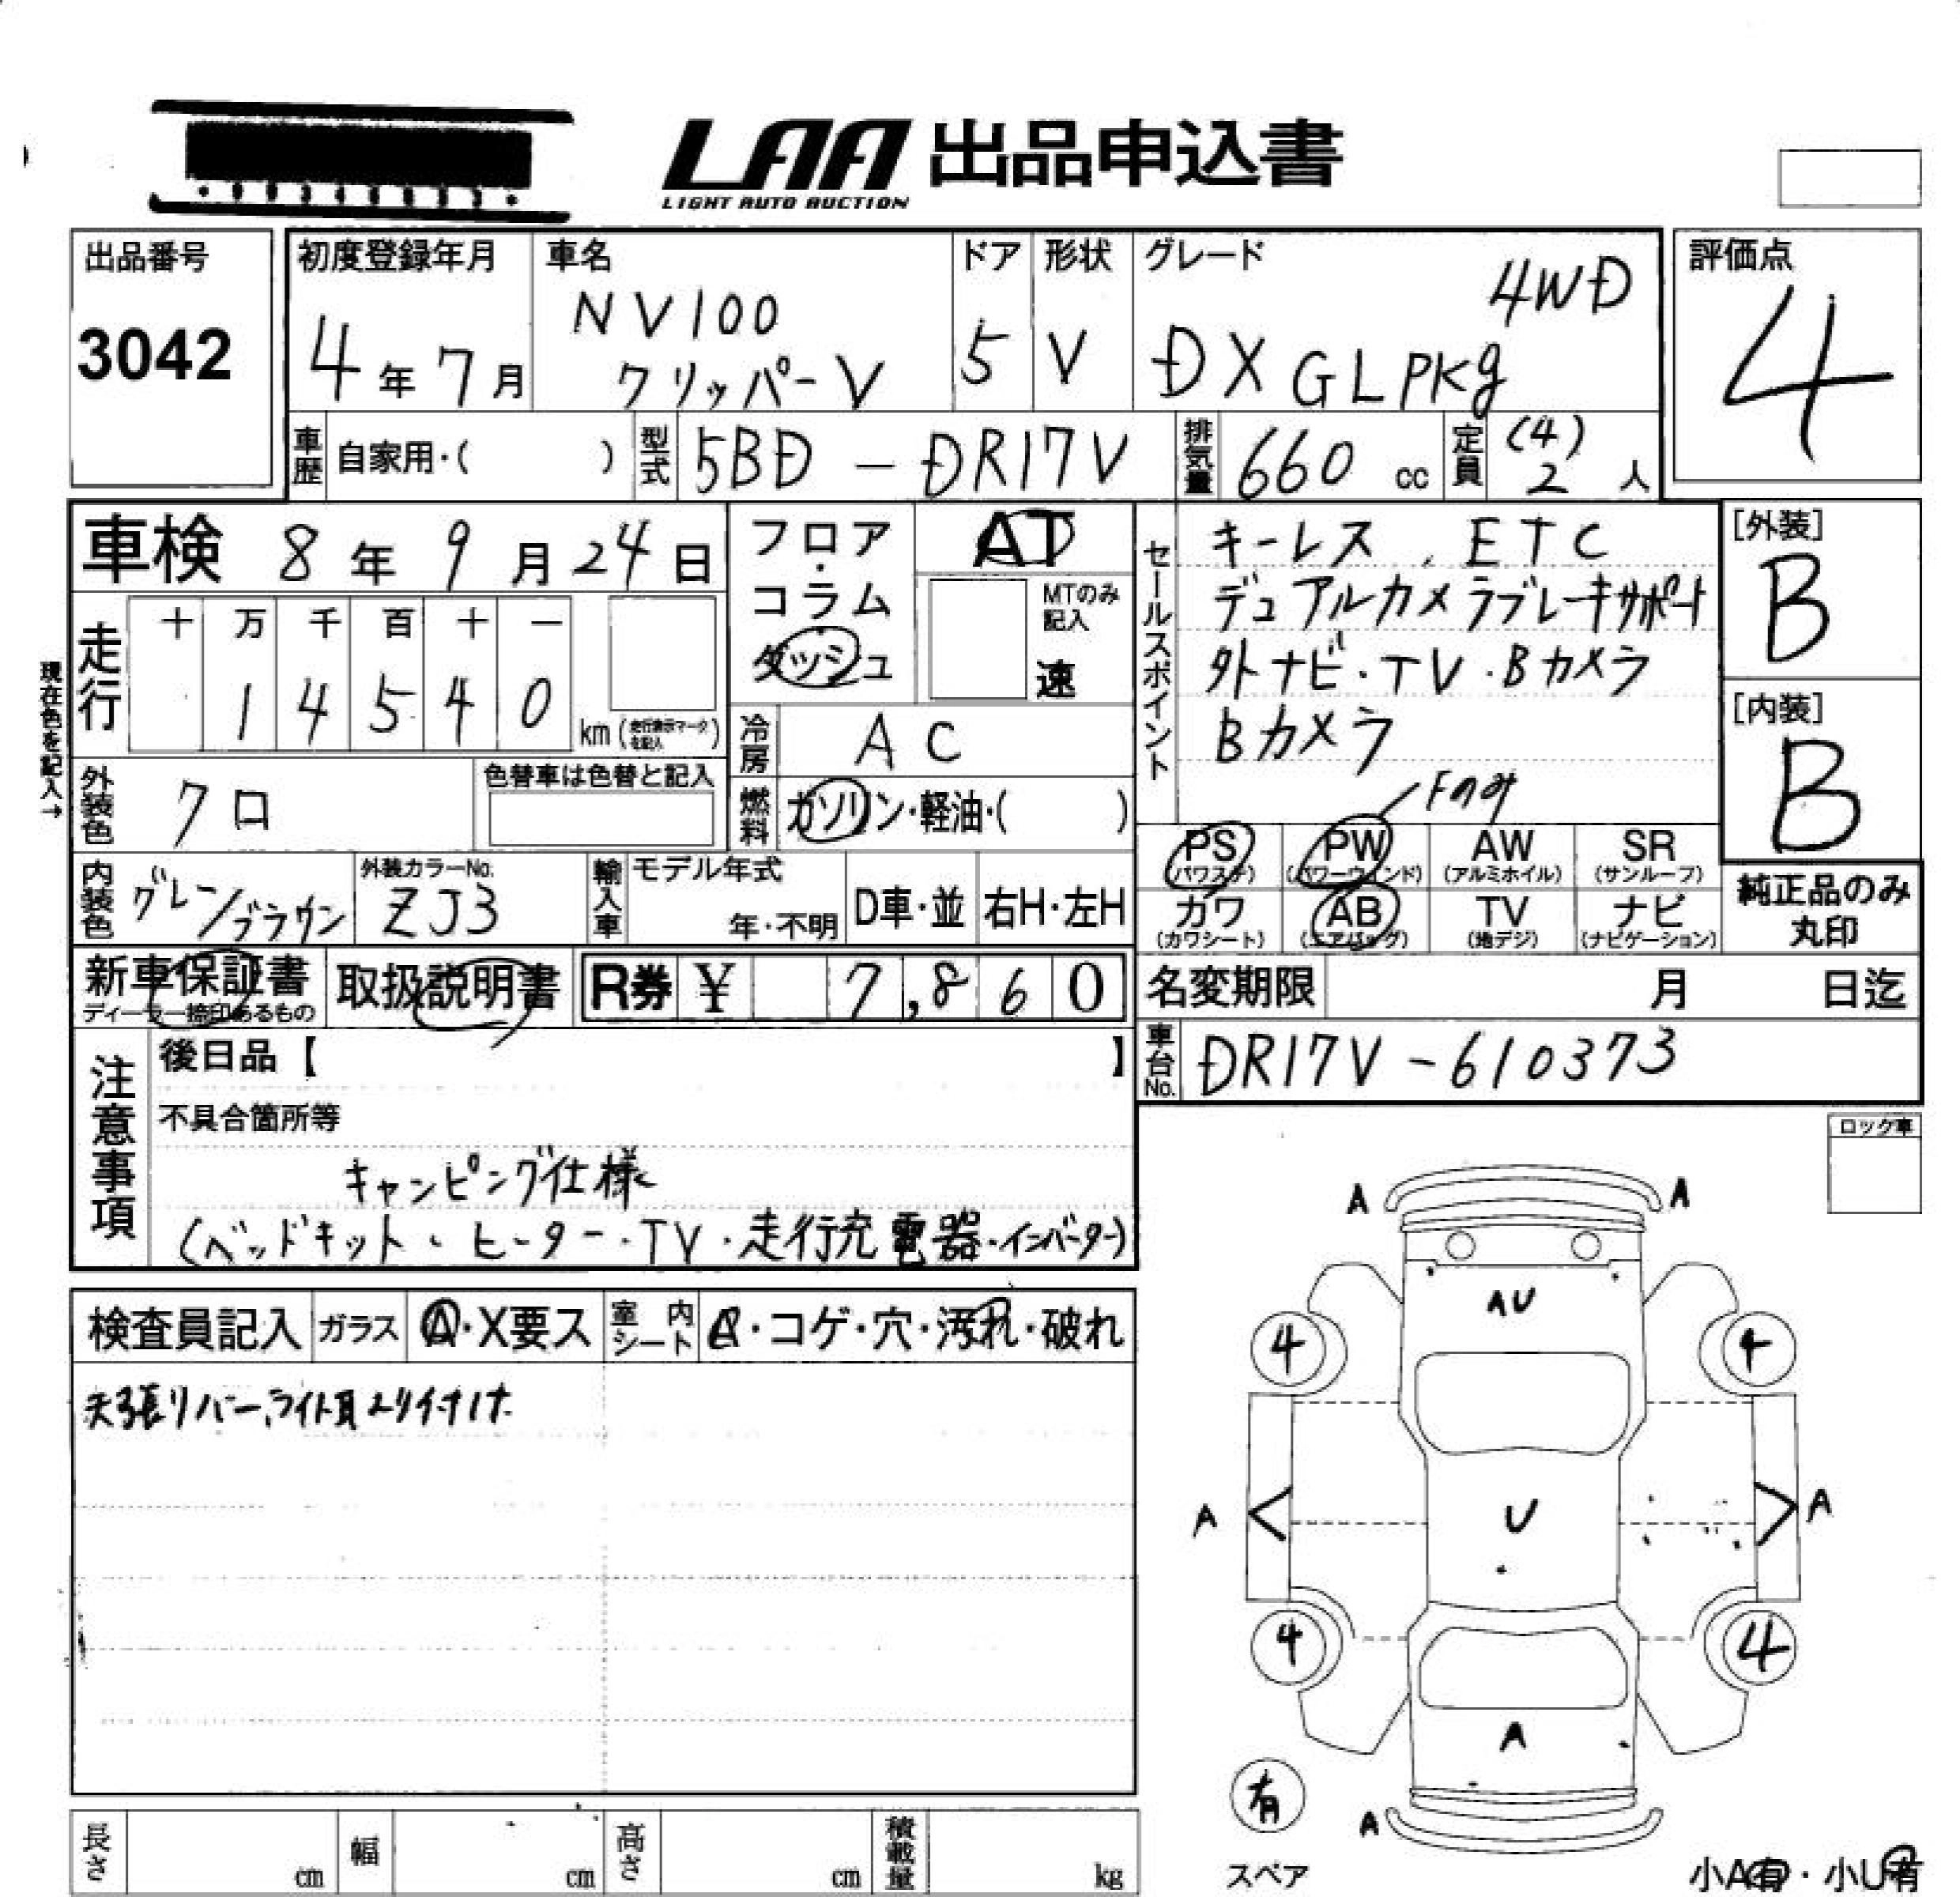 LAA 出品申込書
LIGHT AUTO AUCTION
出品番号
3042
初度登録年月
4年7月
車名
NV100
クリッパーV
ドア
5
形状
V
グレード
4WD
DX GLPKg
評価点
4
車歴 自家用・( )
型式 5BD - DR17V
排気量 660 cc
定員 (4)
2 人
車検 8年9月24日
フロア・
コラム
ダッシュ
AT
MTのみ
記入
速
セールスポイント
キーレス、ETC
デュアルカメラブレーキサポート
外ナビ・TV・Bカメラ
Bカメラ
Fのみ
[外装]
B
[内装]
B
現在色を記入→
走行
十 万 千 百 十 一
1 4 5 4 0 km(走行表示マークを記入)
冷房 AC
燃料 ガソリン・軽油・( )
外装色 クロ
色替車は色替と記入
PS
(パワステ)
PW
(パワーウインド)
AW
(アルミホイル)
SR
(サンルーフ)
カワ
(カワシート)
AB
(エアバッグ)
TV
(地デジ)
ナビ
(ナビゲーション)
純正品のみ
丸印
内装色 グレン/ブラウン
外装カラーNo.
ZJ3
輸入車
モデル年式
年・不明
D車・並
右H・左H
新車保証書
ディーラー捺印あるもの
取扱説明書
R券 ¥ 7,860
名変期限 月 日迄
車台No. DR17V-610373
注意事項
後日品【 】
不具合箇所等
キャンピング仕様
(ベッドキット・ヒーター・TV・走行充電器・インバーター)
ロック車
検査員記入 ガラス A・X要ス 室内シート A・コゲ・穴・汚れ・破れ
天張りバー、ライト取り付け
A A
AU
4 4
A U A
4 4
A
有
A
スペア
小A有・小U有
長さ cm 幅 cm 高さ cm 積載量 kg